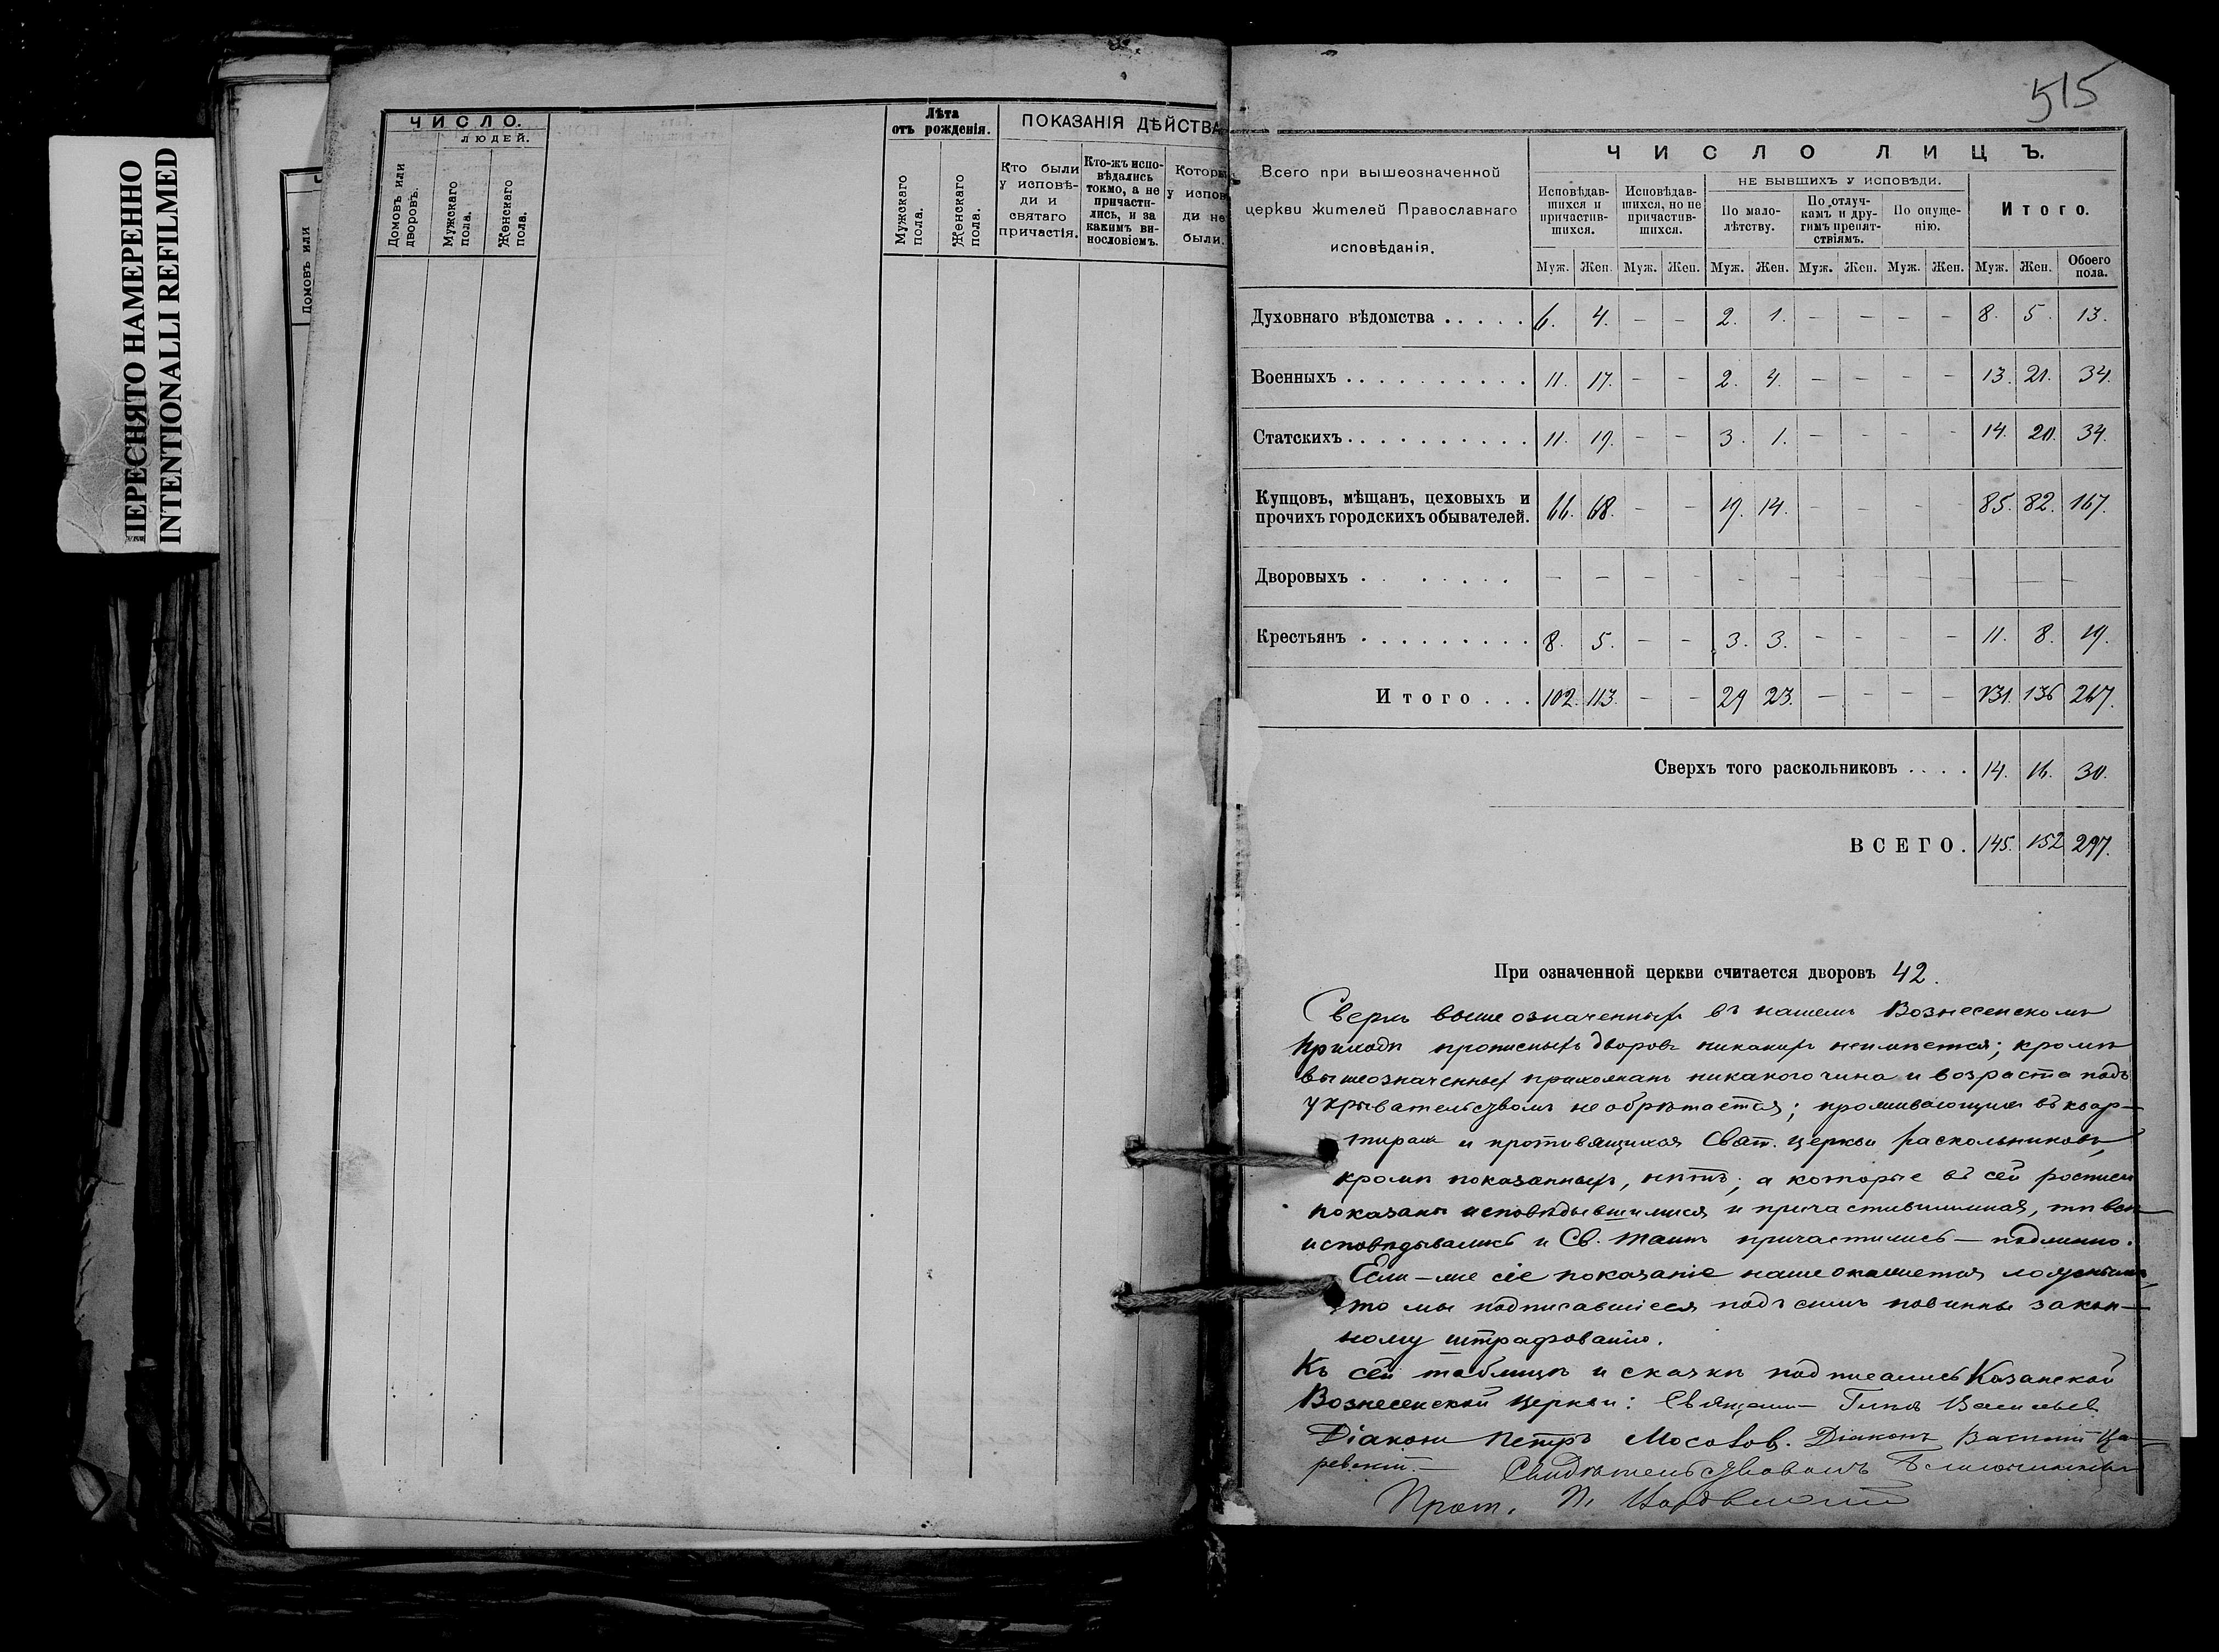 ПЕРЕСНЯТО НАМЕРЕННО
INTENTIONALLI REFILMED
Домовъ или
ЧИСЛО.
ЛЮДЕЙ.
Домовъ или дворовъ.
Мужскаго пола.
Женскаго пола.
Лѣта
отъ рожденія.
Мужскаго пола.
Женскаго пола.
ПОКАЗАНІЯ ДѢЙСТВА
Кто были
у исповѣ-
ди и
святаго
причастія.
Кто-жъ испо-
вѣдались
токмо, а не
причасти-
лись, и за
какимъ ви-
нословіемъ.
Которы
у испов
ди не
были.
515
Всего при вышеозначенной
церкви жителей Православнаго
исповѣданія.
ЧИСЛО ЛИЦЪ.
Исповѣдав-
шихся и
причастив-
шихся.
Исповѣдав-
шихся, но не
причастив-
шихся.
НЕ БЫВШИХЪ У ИСПОВѢДИ.
По мало-
лѣтству.
По отлуч-
камъ и дру-
гимъ препят-
ствіямъ.
По опуще-
нію.
Итого.
Муж. Жен. Муж. Жен. Муж. Жен. Муж. Жен. Муж. Жен. Муж. Жен. Обоего пола.
Духовнаго вѣдомства . . . . . 6. 4. — — 2. 1. — — — — 8. 5. 13.
Военныхъ . . . . . . . . . . 11. 17. — — 2. 4. — — — — 13. 21. 34.
Статскихъ . . . . . . . . . . 11. 19. — — 3. 1. — — — — 14. 20. 34.
Купцовъ, мѣщанъ, цеховыхъ и
прочихъ городскихъ обывателей. 66. 68. — — 19. 14. — — — — 85. 82. 167.
Дворовыхъ . . . . . . . — — — — — — — — — — — —
Крестьянъ . . . . . . . . . 8. 5. — — 3. 3. — — — — 11. 8. 19.
Итого . . . 102. 113. — — 29 23. — — — — 131. 136 267.
Сверхъ того раскольниковъ . . . . 14. 16. 30.
ВСЕГО. 145. 152 297.
При означенной церкви считается дворовъ 42.
Сверхъ вышеозначенныхъ въ нашемъ Вознесенскомъ
приходѣ прописныхъ дворовъ никакихъ неимѣется; кромѣ
вышеозначенныхъ прихожанъ никакого чина и возраста подъ
укрывательствомъ не обрѣтается; проживающихъ въ квар-
тирахъ и противящихся Свят. церкви раскольниковъ,
кромѣ показанныхъ, нѣтъ; а которые въ сей росписи
показаны исповѣдывшимися и причастившимися, тѣ всѣ
исповѣдывались и Св. Таинъ причастились — подлинно.
Если-же сіе показаніе наше окажется ложнымъ,
то мы подписавшіеся подъ симъ повинны закон-
ному штрафованію.
Къ сей таблицѣ и сказкѣ подписались Казанской
Вознесенской церкви: Священн— Васильев
Діаконъ Петръ Мосолов. Діаконъ Василій Ца-
ревскій. — Свидѣтельствовалъ
Прот. П.